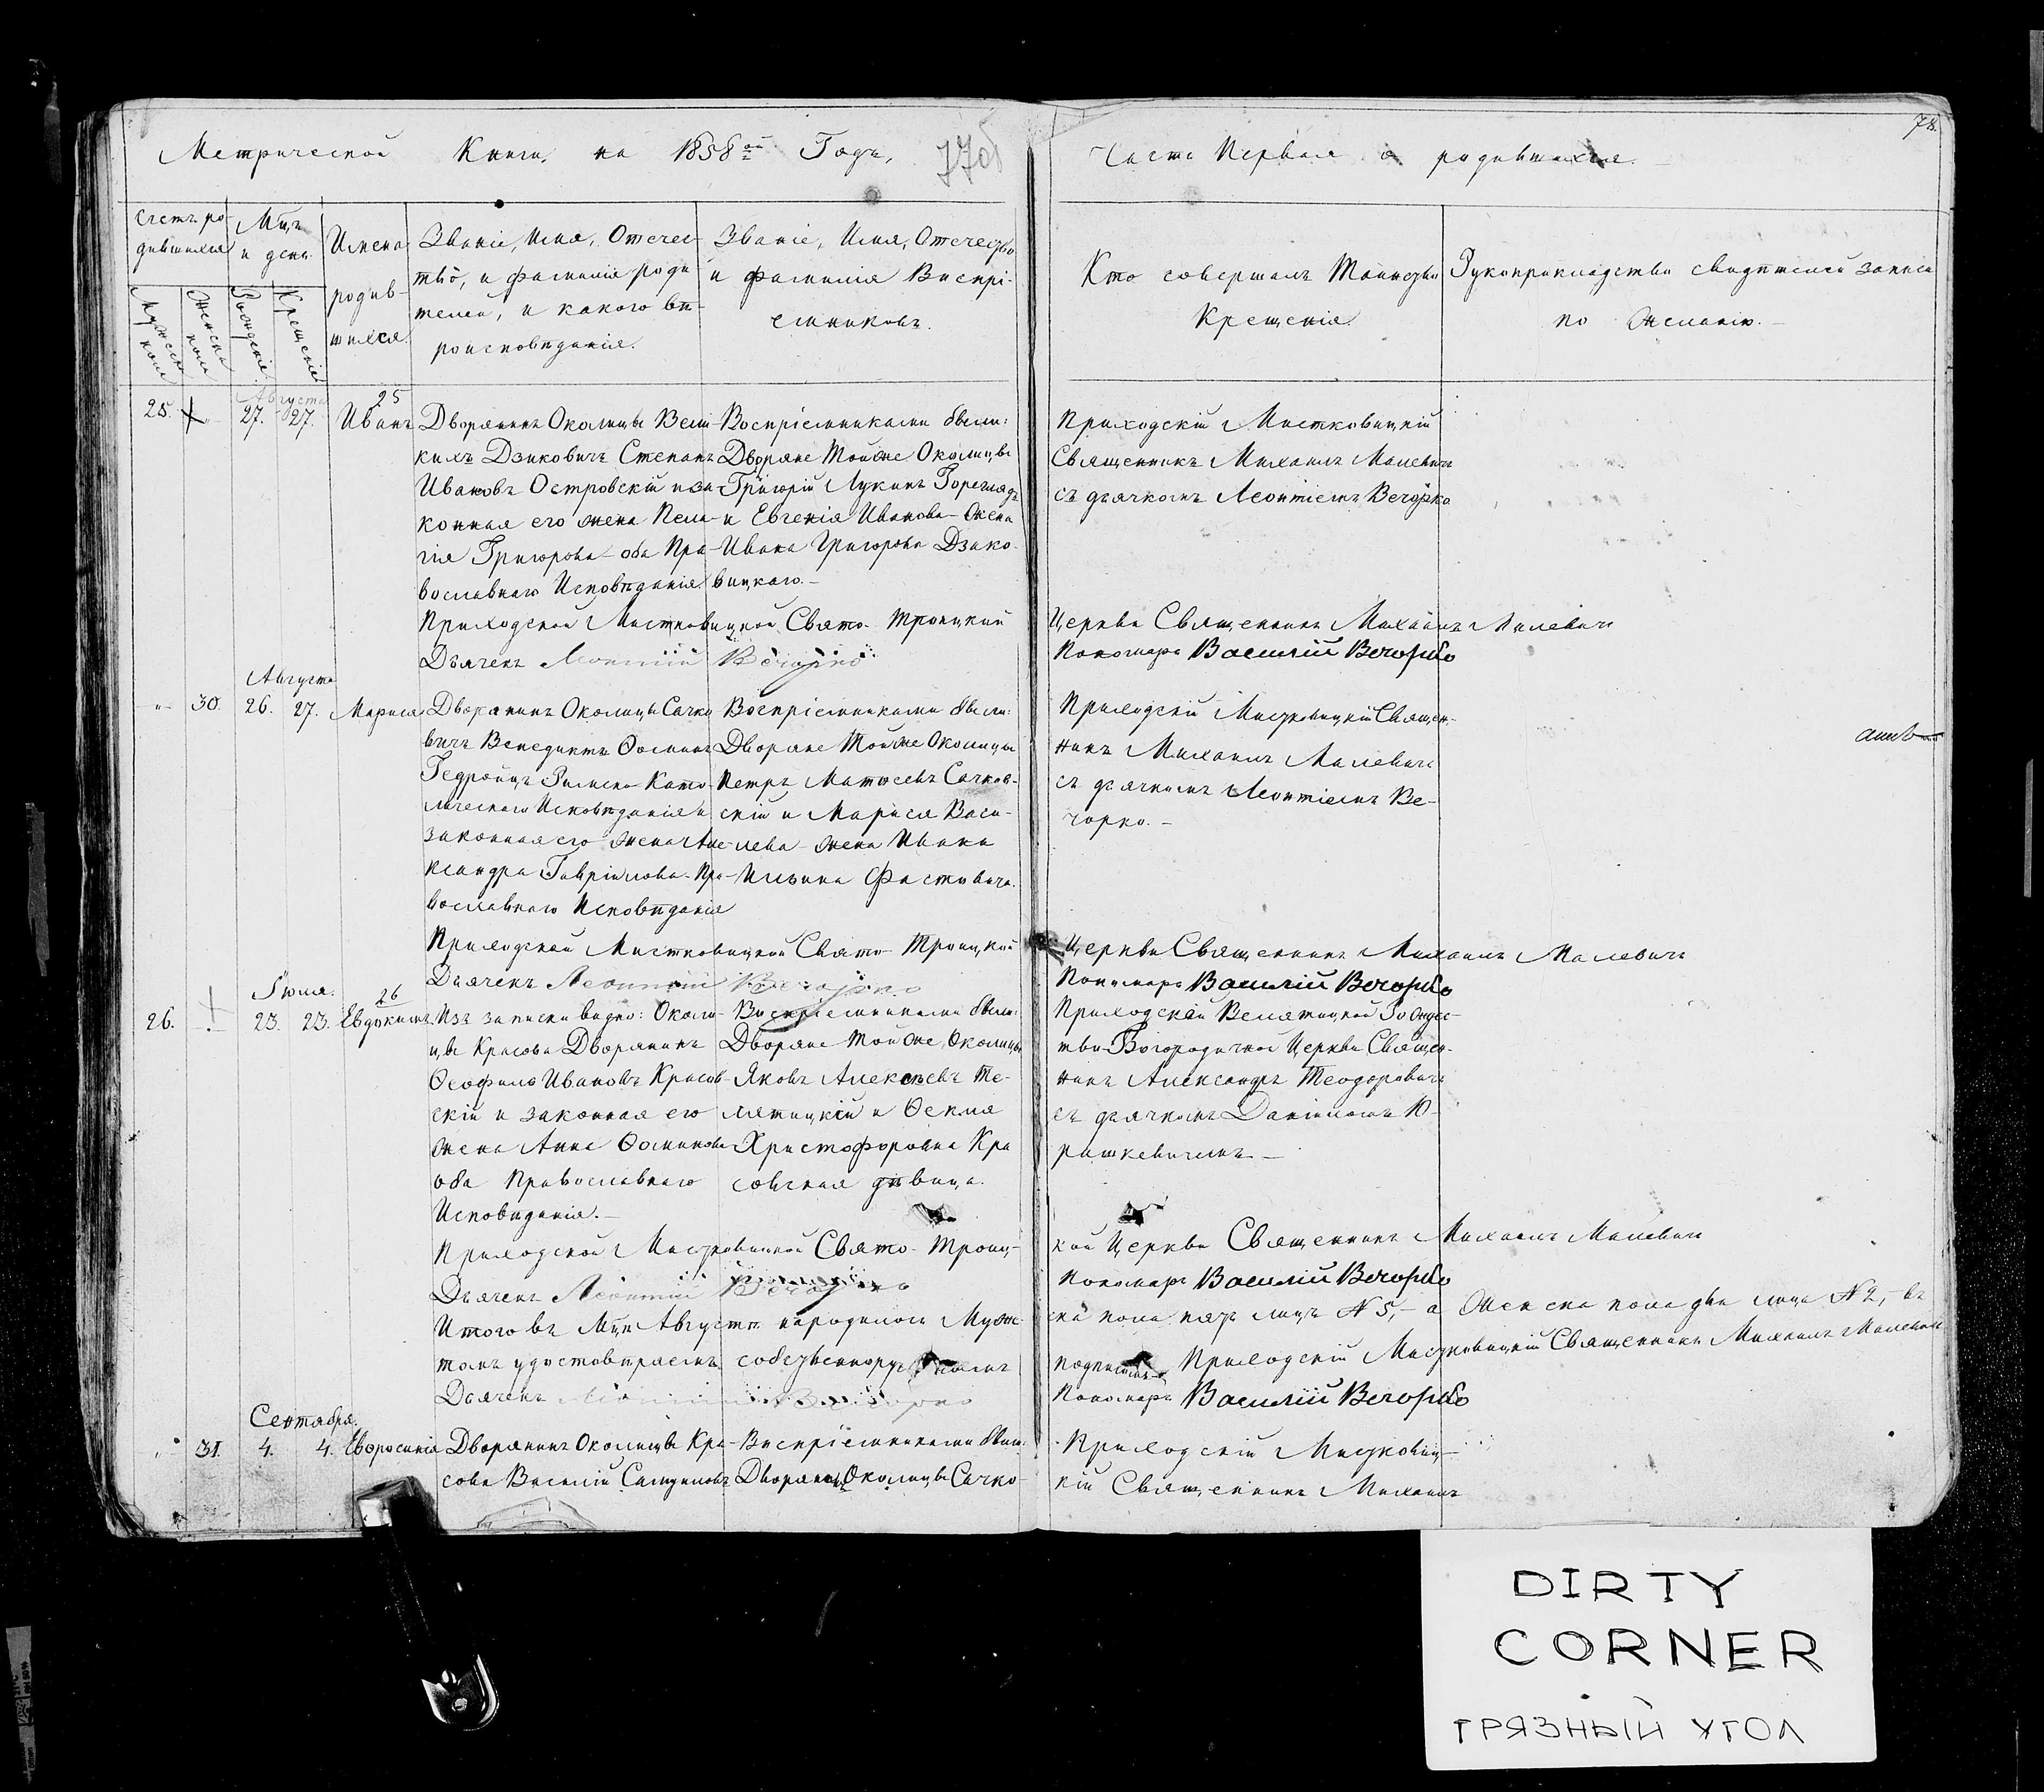 Метрической Книги, на 1858ой Годъ,
77об
Часть Первая о родившихся.
78.
Счетъ ро-
дившихся
Мужеска
пола
Женска
пола
Мцъ
и день
Рожденія
Крещенія
Имена
родив-
шихся.
Званіе, Имя, Отечес-
тво, и фамилія роди
телей, и какого вѣ-
роисповѣданія.
Званіе, Имя, Отечество
и фамилія Воспрі-
емниковъ.
Кто совершалъ Таинство
Крещенія.
Рукоприкладство свидѣтелей записи
по Желанію.
Августа
25
25. 27. 27. Иванъ
Дворянинъ Околицы Вели-
кихъ Дзиковичъ Степанъ
Ивановъ Островскій и за-
конная его жена Пела-
гія Григорова оба Пра-
вославнаго Исповѣданія
Воспріемниками были:
Дворяне Той же Околицы
Григорій Лукинъ Гореглядъ
и Евгенія Иванова Жена
Ивана Григорова Дзико-
вицкаго.
Приходскій Мистковицкій
Священникъ Михаилъ Малевичъ
съ дьячкомъ Леонтіемъ Вечорко
Приходской Мистковицкой Свято Троицкой
Церкви Священникъ Михаилъ Малевичъ
Дьячекъ Леонтій Вечорко
Пономарь Василій Вечорко
Августа
30. 26. 27. Марися
Дворянинъ Околицы Сачко
вичъ Венедиктъ Ѳоминъ
Гедройцъ Римско Като-
лическаго Исповѣданія и
законная его жена Але-
ксандра Гавріилова Пра-
вославнаго Исповѣданія
Воспріемниками были:
Дворяне Той же Околицы
Петръ Матѳеевъ Сачков-
скій и Марися Васи-
лева жена Ивана
Ильина Фастовича.
Приходскій Мистковицкій Священ-
никъ Михаилъ Малевичъ
съ дьячкомъ Леонтіемъ Ве-
чорко.
Приходской Мистковицкой Свято Троицкой
Церкви Священникъ Михаилъ Малевичъ
Дьячекъ Леонтій Вечорко
Пономарь Василій Вечорко
Іюля.
26
26. 23. 23. Евдокимъ
Изъ записки видно: Околи-
цы Красова Дворянинъ
Ѳеофилъ Ивановъ Красов-
скій и законная его
жена Анна Ѳоминова
оба Православнаго
Исповѣданія.
Воспріемниками были:
Дворяне Той же Околицы
Яковъ Алексѣевъ Те-
лятицкій и Ѳекла
Христофоровна Кра
совская дѣвица.
Приходской Велятицкой Рождес-
тво-Богородичной Церкви Священ-
никъ Александръ Теодоровичъ
съ дьячкомъ Даніиломъ Ю-
рашкевичемъ
Приходской Мистковицкой Свято-Троиц-
кой Церкви Священникъ Михаилъ Малевичъ
Дьячекъ Леонтій Вечорко
Пономарь Василій Вечорко
Итого въ Мцѣ Августѣ народилось Муже-
ска пола пять лицъ №5, а Женска пола два лица №2, въ
томъ удостовѣряемъ собственноручнымъ
подписомъ Приходскій Мистковицкій Священникъ Михаилъ Малевичъ
Дьячекъ Леонтій Вечорко
Пономарь Василій Вечорко
Сентября.
31. 4. 4. Евфросинія
Дворянинъ Околицы Кра-
сова Василій Самуиловъ
Воспріемниками были:
Дворянинъ Околицы Сачко-
Приходскій Мистковиц-
кій Священникъ Михаилъ
DIRTY
CORNER
ГРЯЗНЫЙ УГОЛ